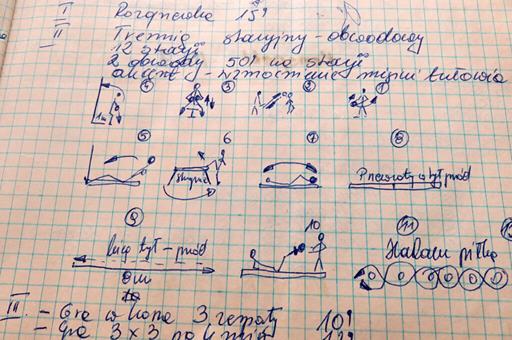 I Rozgrzewka 15'
II Trening stacyjny - obwodowy
12 stacji
2 obwody 50" na stacji
akcent - wzmocnienie mięśni tułowia
4 3 2 1
1m
5 6 7 8
skrzynia
Przewroty w tył przód
9 10 11
tył - przód
9m
piłką
III - Gra 3 zespoły 10'
- Gra 3x3 12'